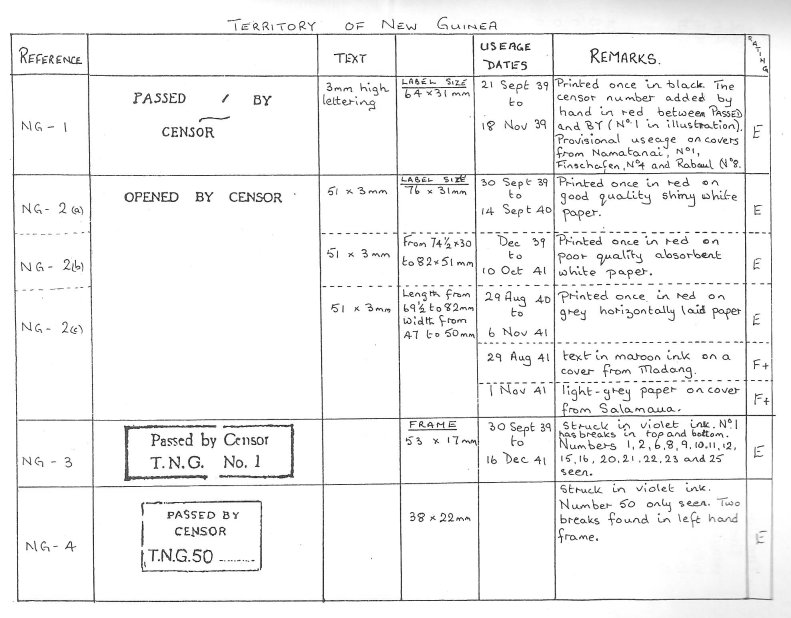 TERRITORY OF NEW GUINEA
REFERENCE
TEXT
USEAGE
DATES
REMARKS.
RATING
NG - 1
PASSED / BY
CENSOR
3mm high
lettering
LABEL SIZE
64 x 31 mm
21 Sept 39
to
18 Nov 39
Printed once in black. The
censor number added by
hand in red between PASSED
and BY (Nº 1 in illustration).
Provisional useage on covers
from Namatanai, Nº1,
Finschafen, Nº4 and Rabaul (Nº8.
E
NG - 2 (a)
OPENED BY CENSOR
51 x 3mm
LABEL SIZE
76 x 31mm
30 Sept 39
to
14 Sept 40
Printed once in red on
good quality shiny white
paper.
E
NG - 2(b)
51 x 3mm
From 74½ x 30
to 82 x 51 mm
Dec 39
to
10 Oct 41
Printed once in red on
poor quality absorbent
white paper.
E
NG - 2(c)
51 x 3mm
Length from
69½ to 82mm
Width from
47 to 50mm
29 Aug 40
to
6 Nov 41
Printed once in red on
grey horizontally laid paper
E
29 Aug 41
text in maroon ink on a
cover from Madang.
F+
1 Nov 41
light-grey paper on cover
from Salamaua.
F+
NG - 3
Passed by Censor
T.N.G. No. 1
FRAME
53 x 17mm
30 Sept 39
to
16 Dec 41
Struck in violet ink. Nº1
has breaks in top and bottom.
Numbers 1, 2, 6, 8, 9, 10, 11, 12,
15, 16, 20, 21, 22, 23 and 25
seen.
E
NG - 4
PASSED BY
CENSOR
T.N.G. 50 ........
38 x 22mm
Struck in violet ink.
Number 50 only seen. Two
breaks found in left hand
frame.
E